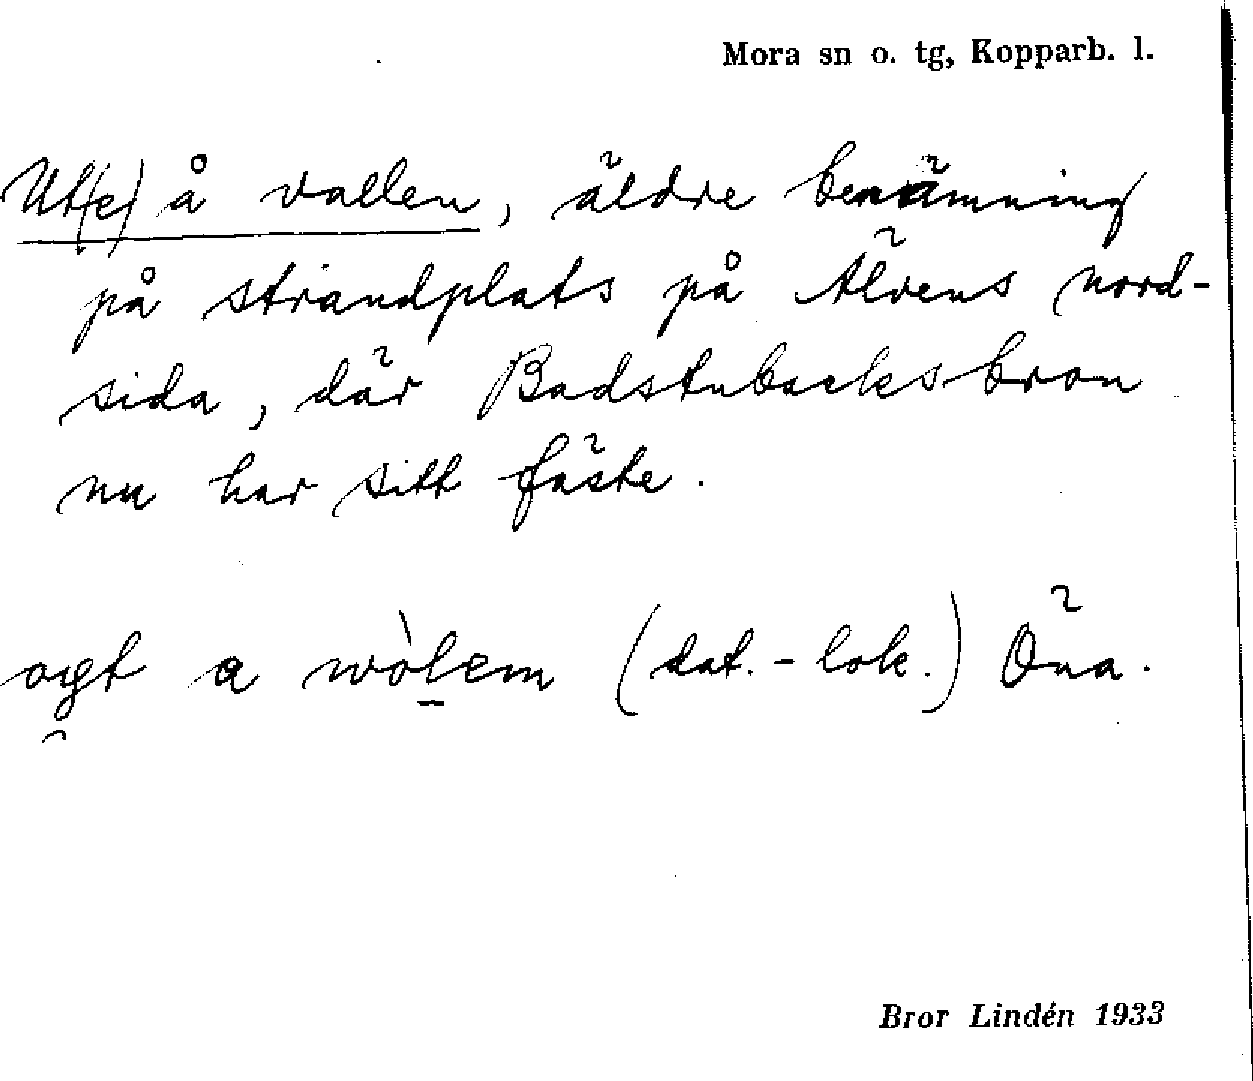 Mora sn o. tg, Kopparb. l.
Ut(e) å vallen, äldre benämning
på strandplats på Älvens nord-
sida, där Badstubacksbron
nu har sitt fäste.
ogt a wòlem (dat.-lok.) Öna.
Bror Lindén 1933